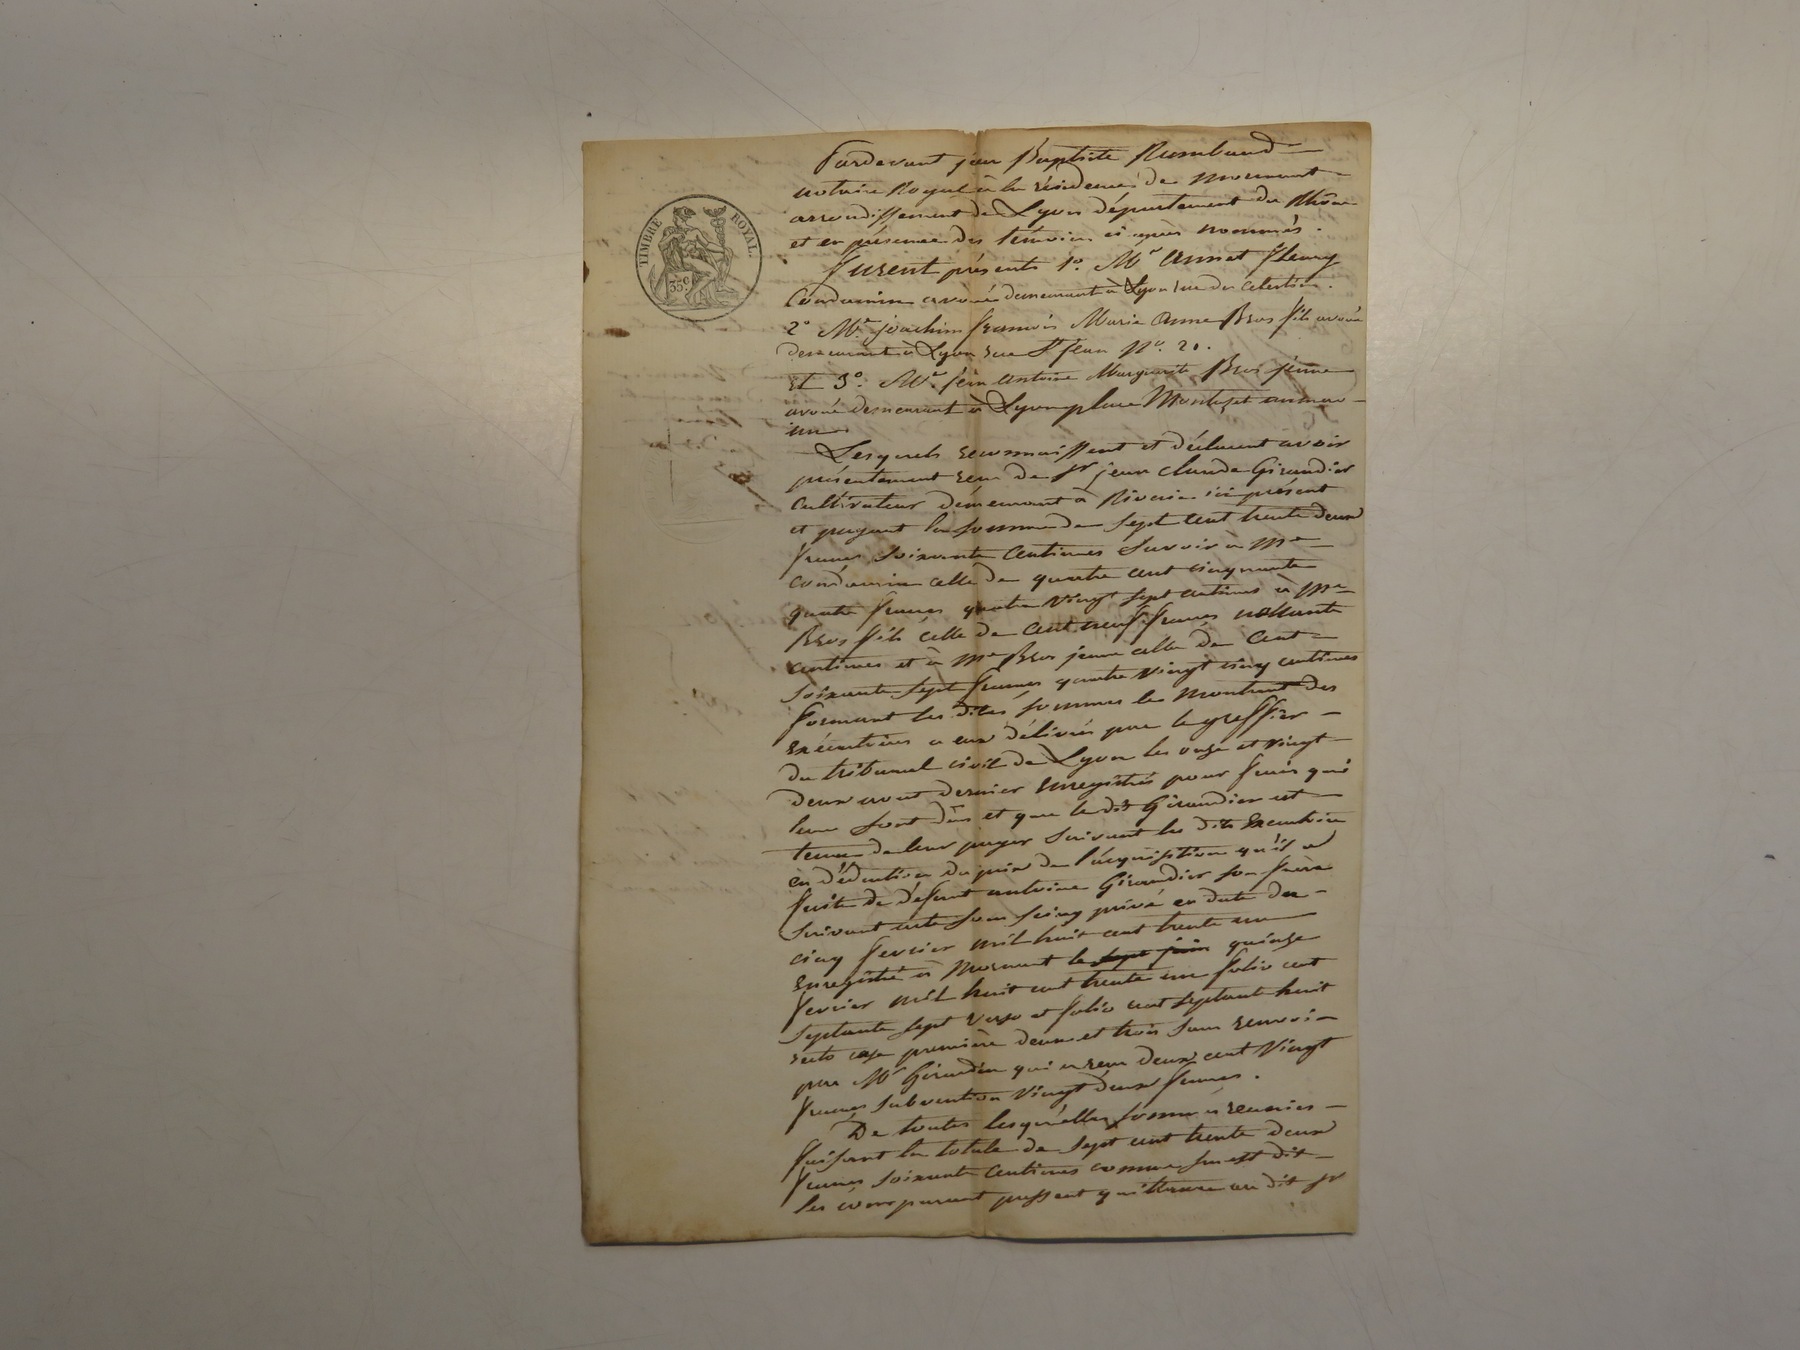 TIMBRE ROYAL.
35c
Pardevant jean Baptiste Rambaud
notaire Royal à la résidence de Mornant
arrondissement de Lyon département du Rhône
et en présence des témoins ci après nommés.
furent présents 1o. Mr annet fleury
Condamin avoué demeurant à Lyon rue des Celestins.
2o Mr. joachim françois Marie Anne Bros fils avoué
demeurant à Lyon rue St Jean No. 20.
et 3o. Mr. jean antoine Marguerite Bros jeune
avoué demeurant à Lyon place Montazet numéro
un.
Lesquels reconnaissent et déclarent avoir
présentement reçu de Sr jean claude Giraudier
cultivateur demeurant à Riverie ici présent
et payant la somme de sept cent trente deux
francs soixante centimes savoir à Me
condamin celle de quatre cent cinquante
quatre francs quatre vingt sept centimes à Me
Bros fils celle de cent neuf francs nonante
centimes et à Me Bros jeune celle de cent
soixante sept francs quatre vingt cinq centimes
formant les dites sommes le montant des
exécutoires à eux délivrés par le greffier
du tribunal civil de Lyon les onze et vingt
deux aout dernier enregistrés pour frais qui
leur sont dûs et que le dit Giraudier est
tenu de leur payer suivant les dits exécutoires
en déduction du prix de l'acquisition qu'il a
faite de défunt antoine Giraudier son frère
suivant acte sous seing privé en date du
cinq fevrier mil huit cent trente un
enregistré à Mornant le sept juin quinze
fevrier mil huit cent trente un folio cent
septante sept verso et folio cent septante huit
recto case première deux et trois sans renvoi
par Mr Girardin qui a reçu deux cent vingt
francs subvention vingt deux francs.
De toutes lesquelles sommes réunies
faisant la totale de sept cent trente deux
francs soixante centimes comme sus est dit
les comparants passent quittance au dit Sr